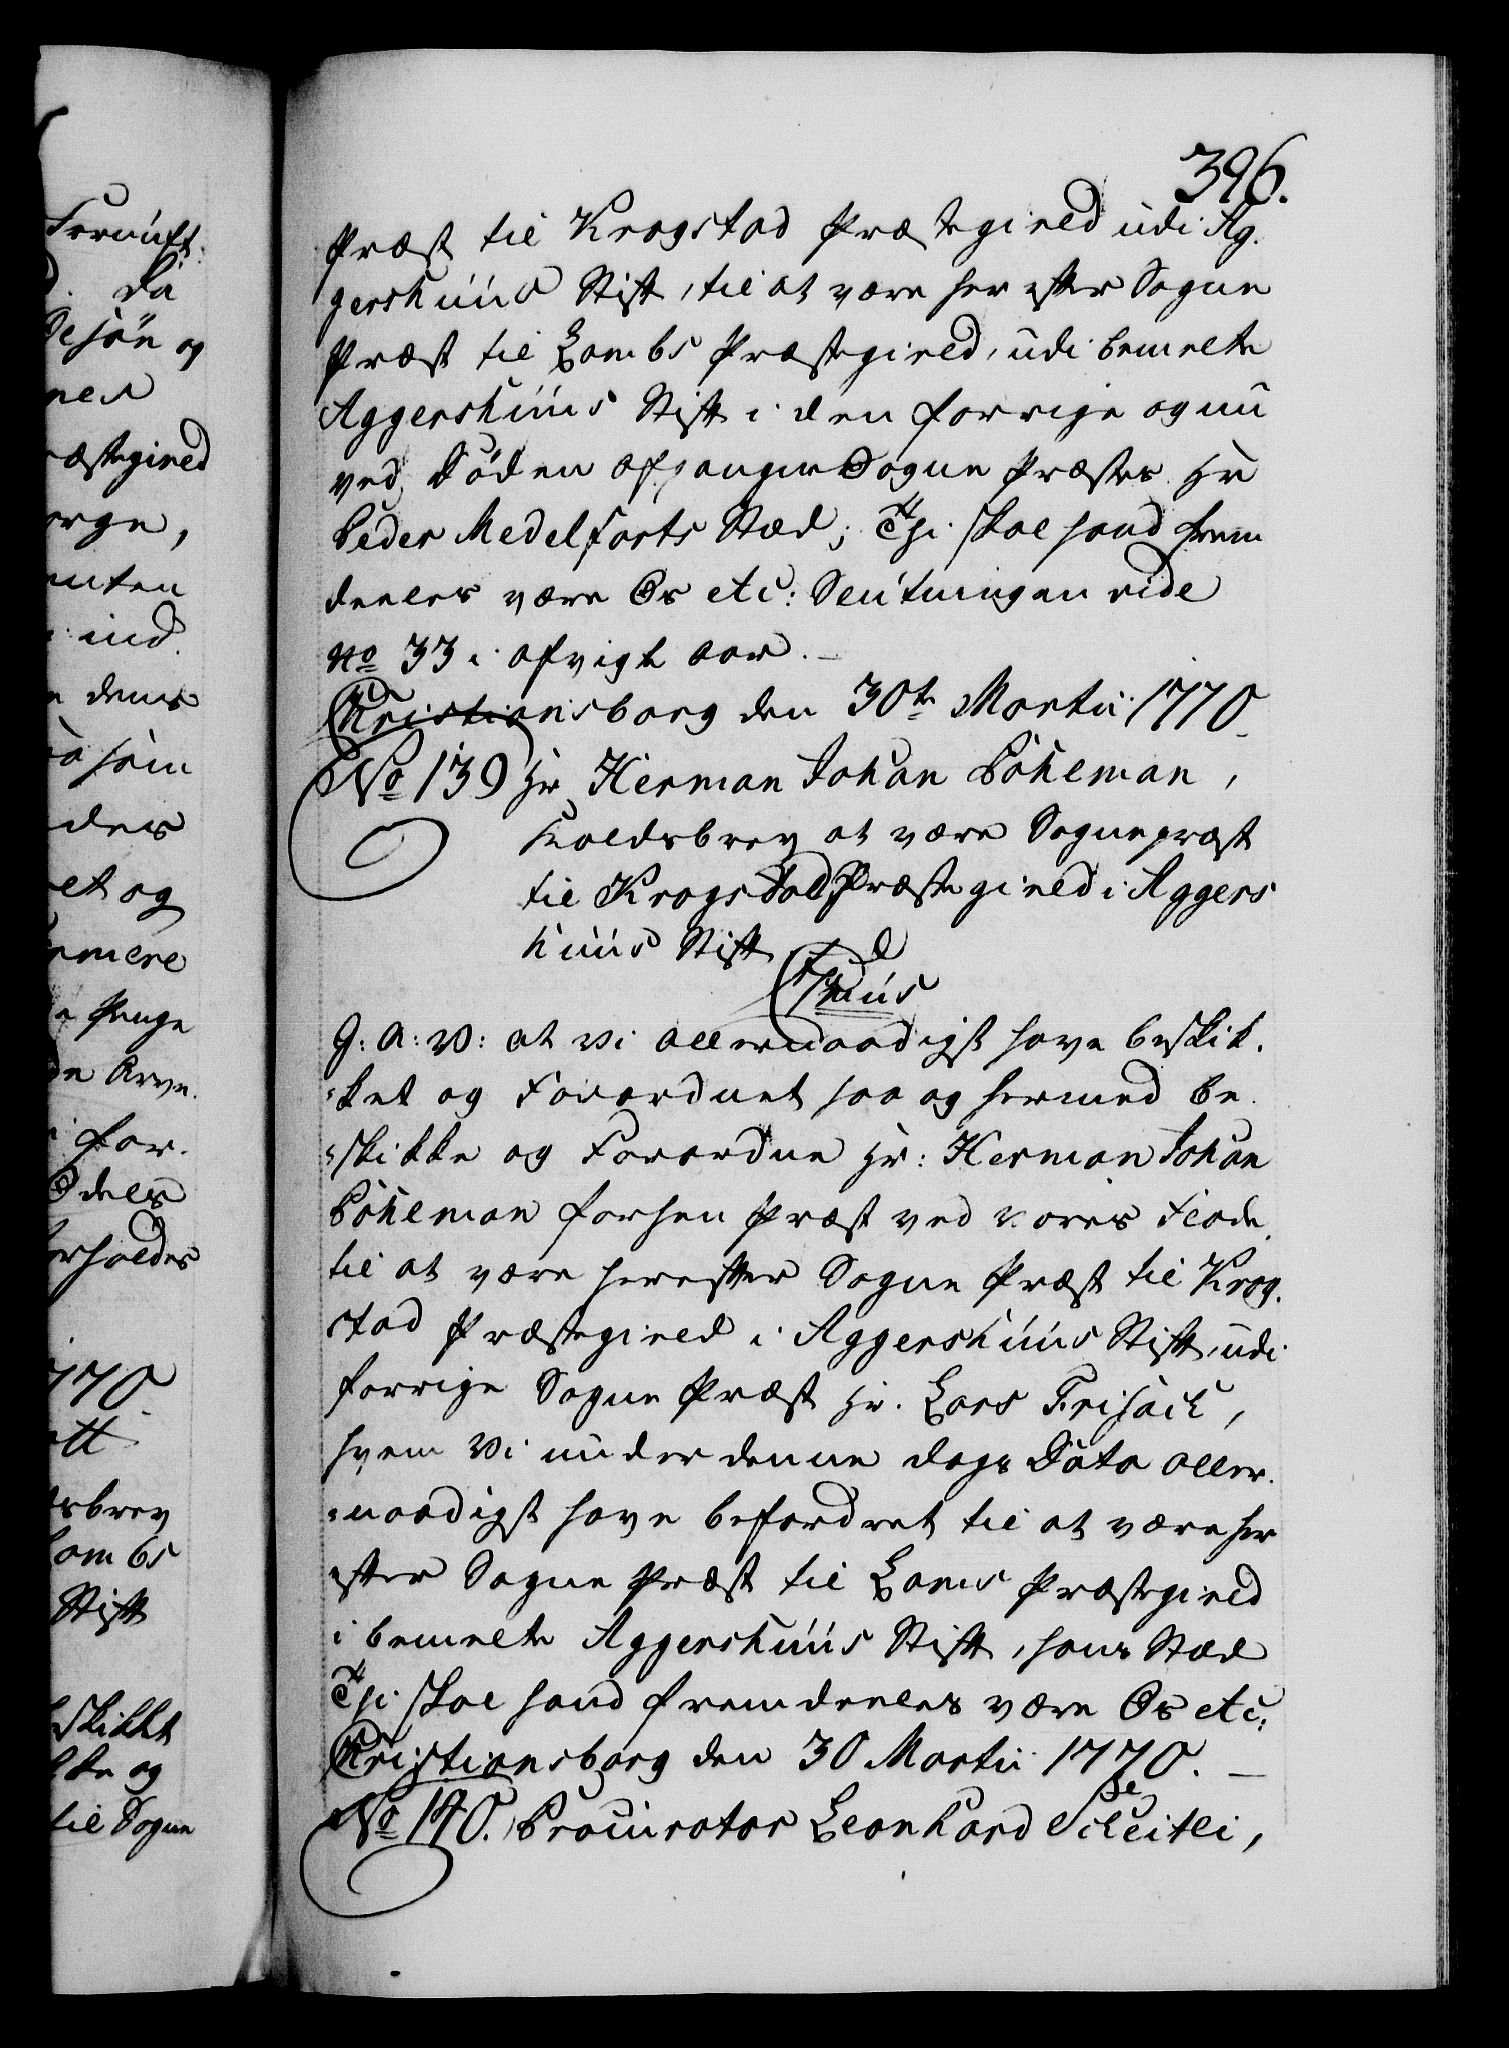 396.
Præst til Krogstad Præstegield udi Ag,
gershuus Stift, til at være her efter Sogne
Præst til Lombs Præstegield, udi bemelte
Aggershuus Stift i den forrige og nu
ved Døden afgangne Sogne Præstes Hr
Peder Medelfarts Stæd; Thi skal hand frem
deeles være Os etc: Slutningen vide
No 33 i afvigte aar. —
Christiansborg den 30te Martii 1770.
No 139 Hr Herman Johan Böheman,
Kaldsbrev at være Sognepræst
til Krogstad Præstegield i Aggers
huus Stift
Gratis
G: A: V: at Vi allernaadigst have beskik,
ket og Forordnet saa og hermed be,
skikke og Forordne Hr: Herman Johan
Böheman forhen Præst ved vores Flode,
til at være herefter Sogne Præst til Krog,
stad Præstegield i Aggershuus Stift, udi
forrige Sogne Præst Hr. Lars Frisach,
hvem Vi under denne dags Dato aller,
naadigst have befordret til at være her
efter Sogne Præst til Loms Præstegield
i bemelte Aggershuus Stift, hans Stæd
Thi skal hand fremdeeles være Os etc:
Christiansborg den 30 Martii 1770. —
No 140. Procurator Leonhard Scheitli,